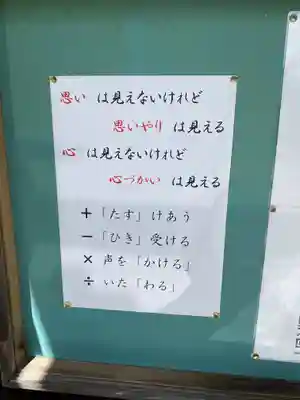 思い は見えないけれど
思いやり は見える
心 は見えないけれど
心づかい は見える
＋「たす」けあう
－「ひき」受ける
×声を「かける」
÷いた「わる」